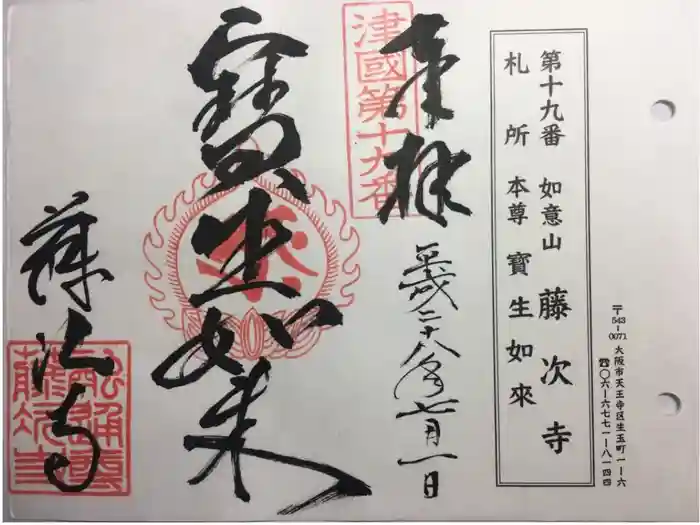 〒543-0071 大阪市天王寺区生玉町一-六
☎〇六-六七七一-八一四四
第十九番 如意山 藤次寺
札所 本尊 寶生如來
奉拝
津國第十九番
平成二十八年七月一日
寶生如来
藤次寺